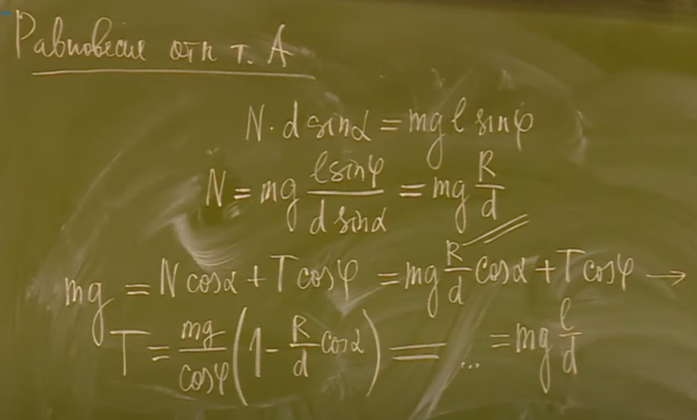 Равновесие отн т. A
N · d sinα = mg l sinφ
N = mg \frac{l sinφ}{d sinα} = mg \frac{R}{d}
mg = N cosα + T cosφ = mg \frac{R}{d} cosα + T cosφ →
T = \frac{mg}{cosφ} (1 - \frac{R}{d} cosα) = ... = mg \frac{l}{d}